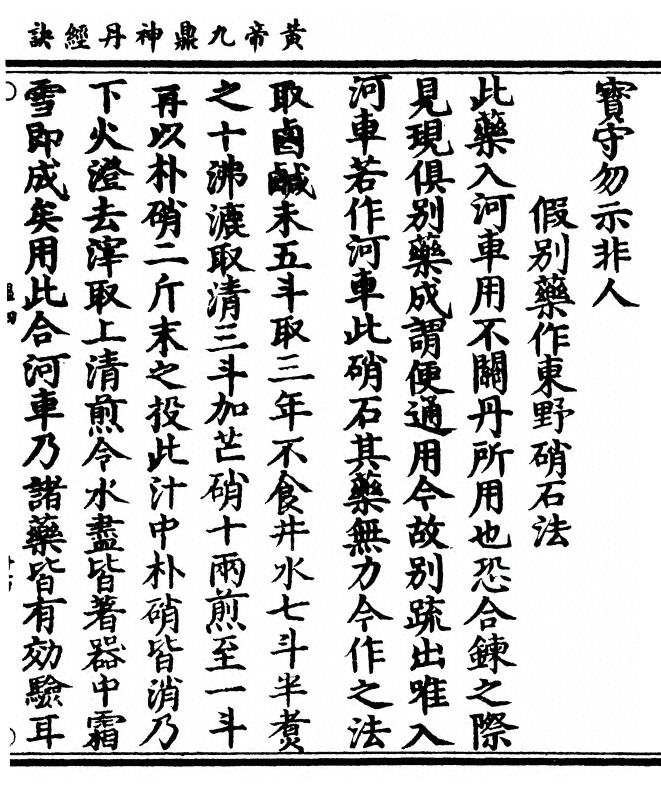 黃帝九鼎神丹經訣
寶守勿示非人
假別藥作東野硝石法
此藥入河車用不關丹所用也恐合鍊之際
見現俱別藥成謂便通用今故別疏出唯入
河車若作河車此硝石其藥無力今作之法
取鹵鹹末五斗取三年不食井水七斗半煑
之十沸漉取清三斗加芒硝十兩煎至一斗
再以朴硝二斤末之投此汁中朴硝皆消乃
下火澄去滓取上清煎令水盡皆著器中霜
雪即成矣用此合河車乃諸藥皆有効驗耳